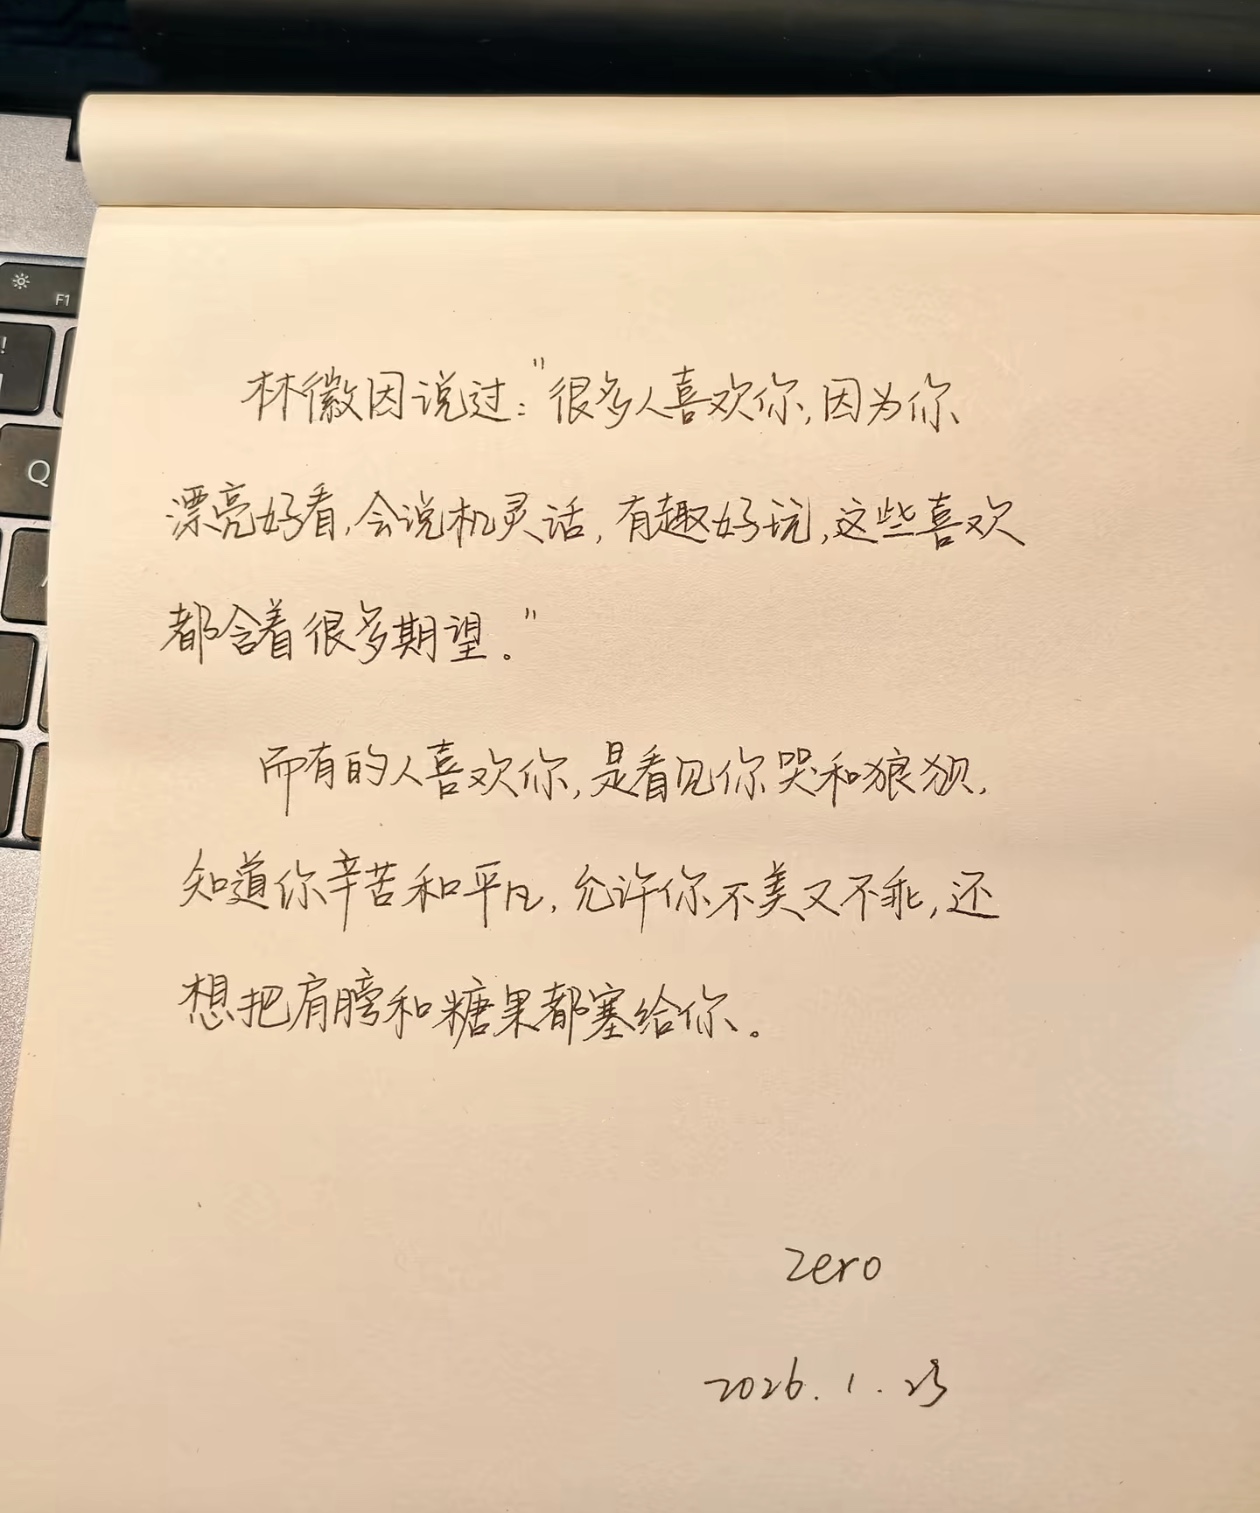 林徽因说过："很多人喜欢你,因为你
漂亮好看,会说机灵话,有趣好玩,这些喜欢
都含着很多期望。"
而有的人喜欢你,是看见你哭和狼狈,
知道你辛苦和平凡,允许你不美又不乖,还
想把肩膀和糖果都塞给你。
zero
2026.1.23
F1
!
Q